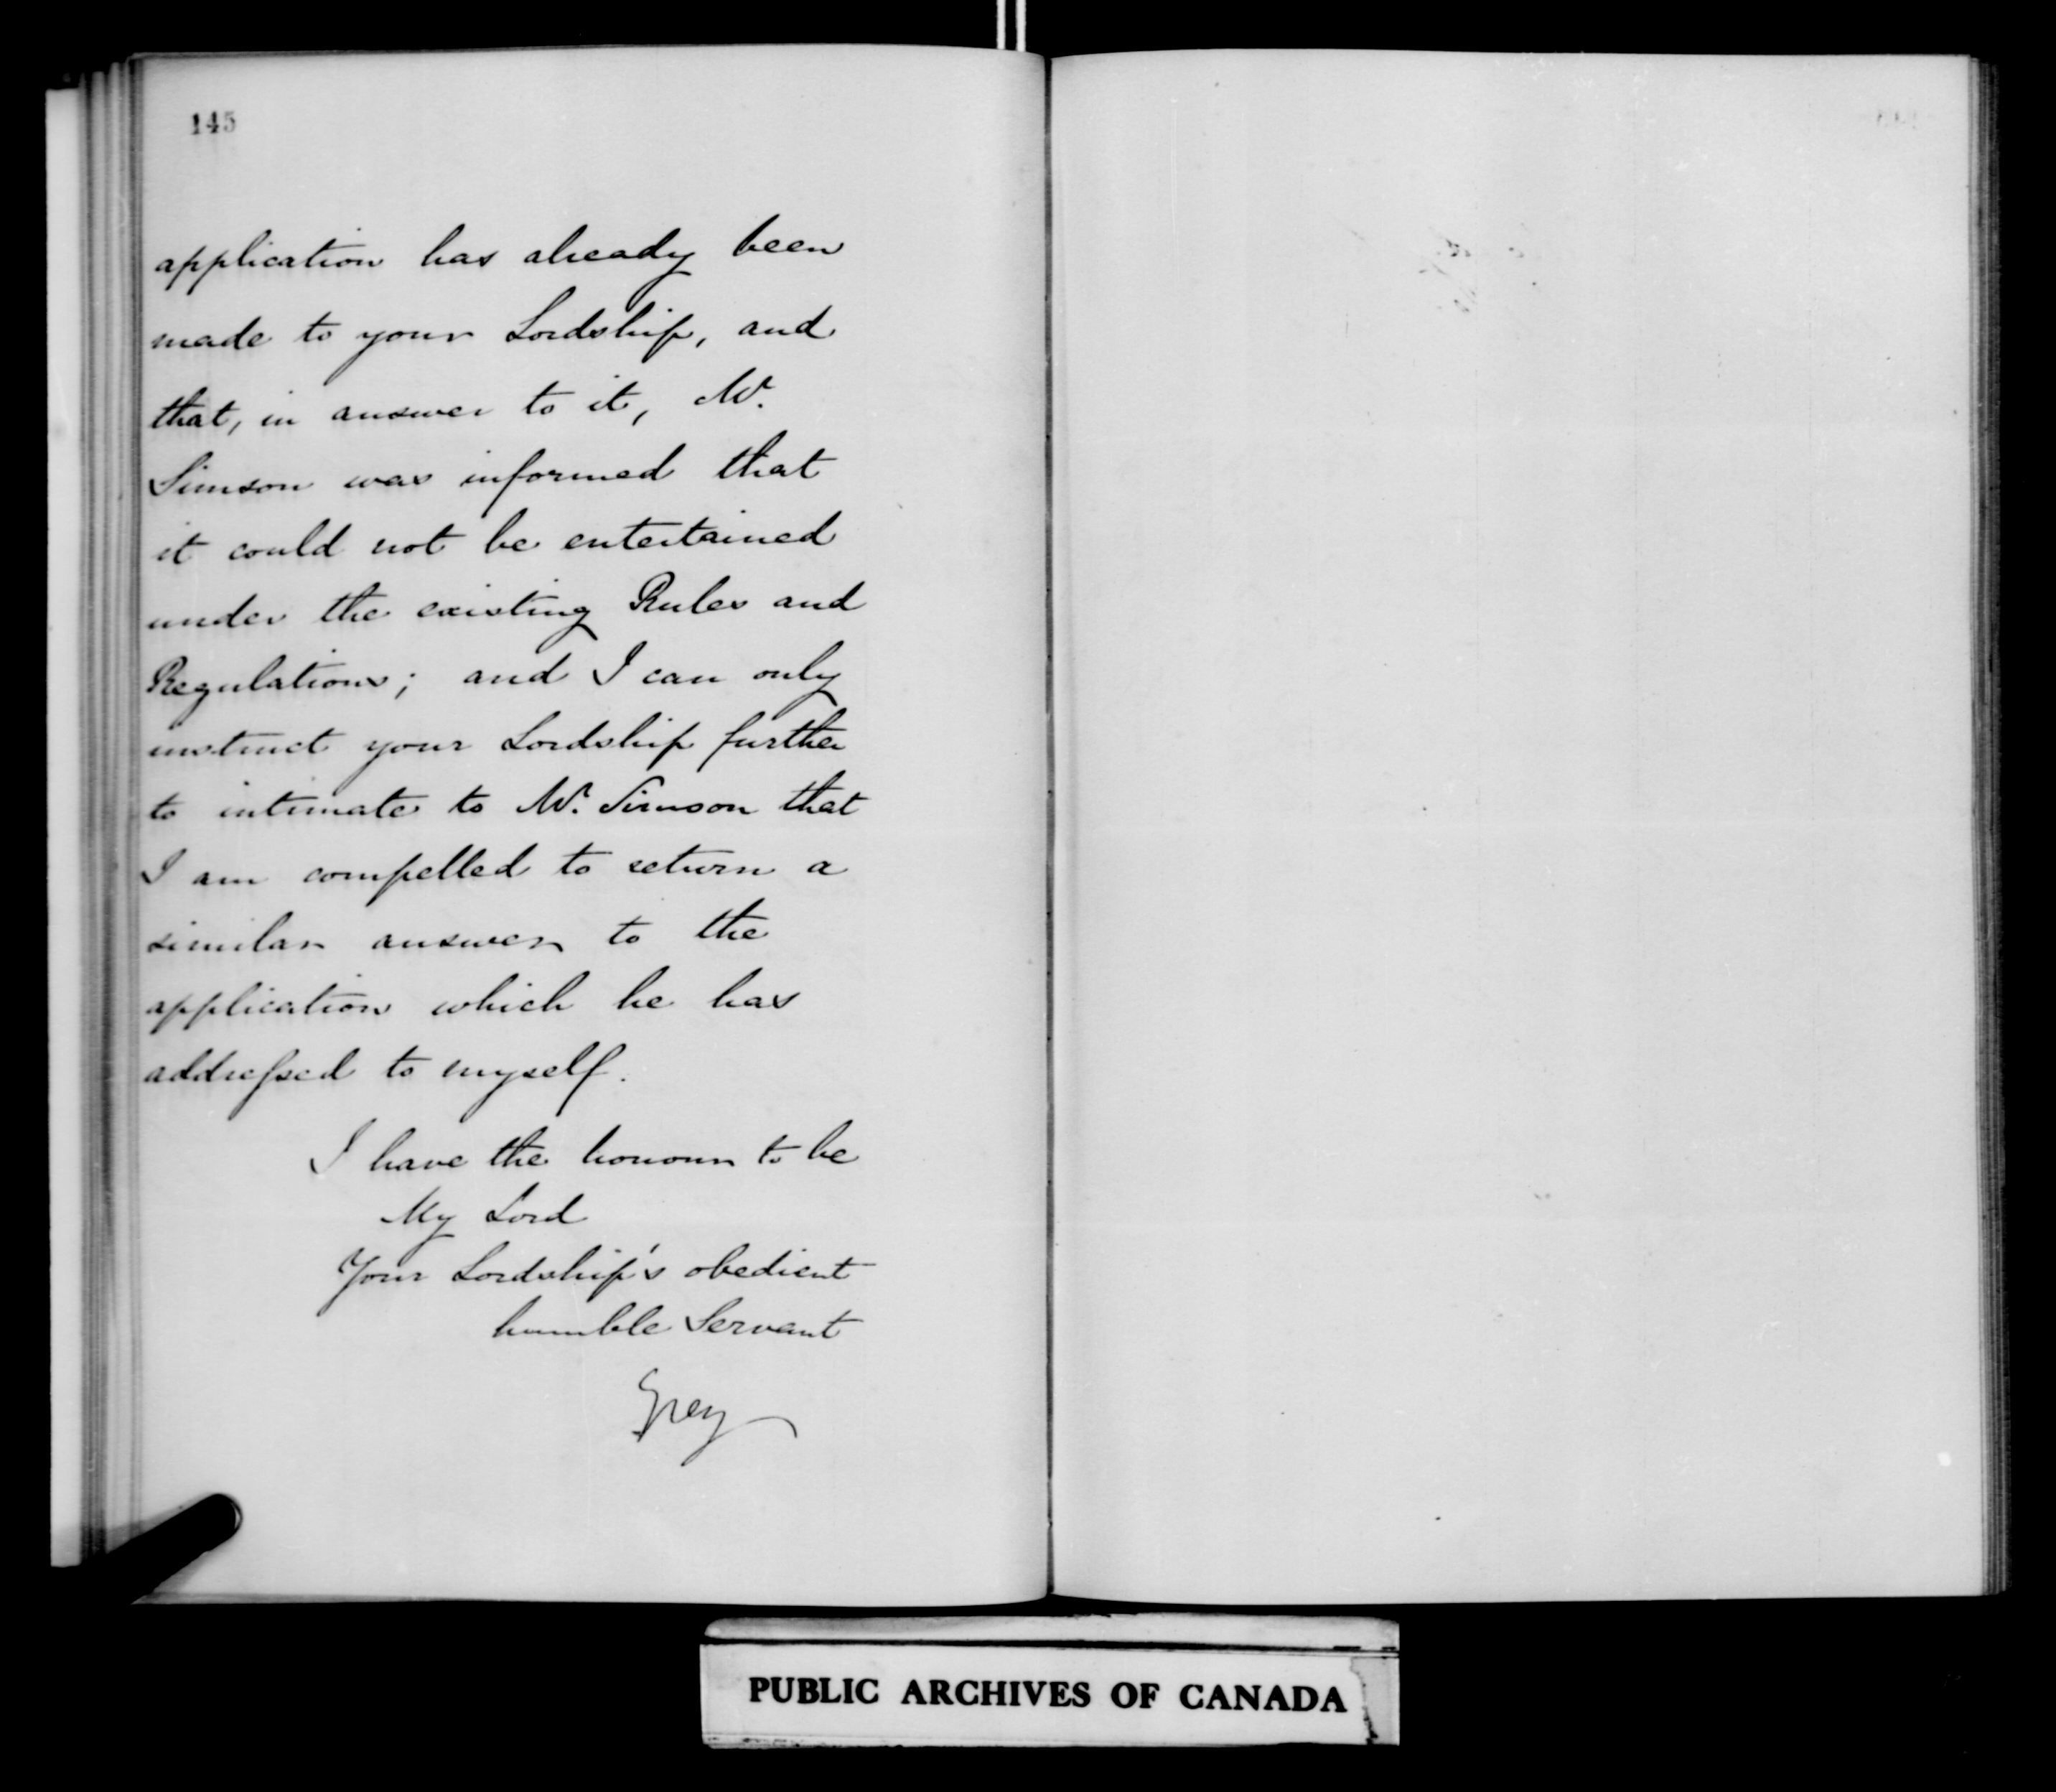 145
application has already been
made to your Lordship, and
that, in answer to it, Mr.
Simson was informed that
it could not be entertained
under the existing Rules and
Regulations; and I can only
instruct your Lordship further
to intimate to Mr. Simson that
I am compelled to return a
similar answer to the
application which he has
addressed to myself.
I have the honour to be
My Lord
Your Lordship's obedient
humble Servant
Grey
PUBLIC ARCHIVES OF CANADA